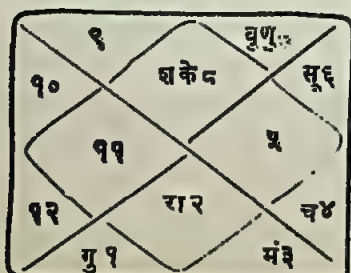 ९
१०
श के ८
सू ६
११
५
१२
रा २
च ४
गु १
मं ३